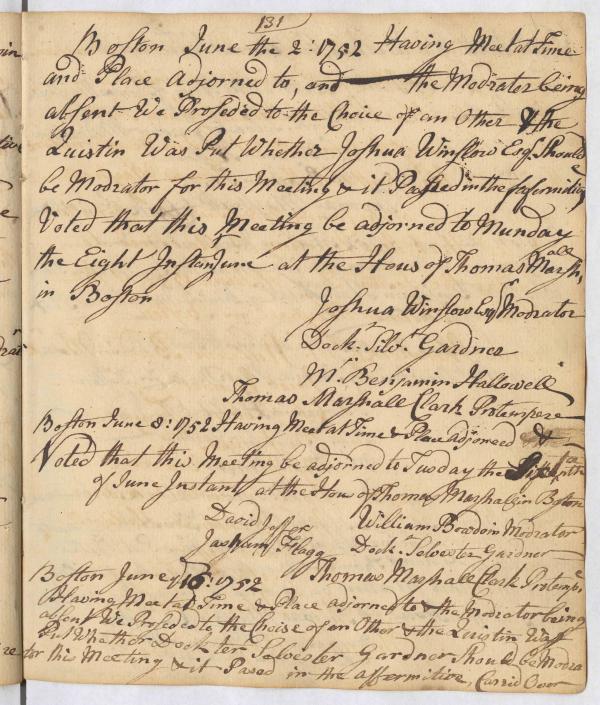 131
Boston June the 2: 1752 Having Meet at Time
and Place adjorned to, and the Modrator being
absent We Proseded to the Choice of an Other & the
Quistin Was Put Whether Joshua Winslow Esqr. Should
be Modrator for this Meeting & it Passed in the
Voted that this Meeting be adjorned to Munday
the Eight Instant June at the Hous of Thomas Marshall,
in Boston
Joshua Winslow Esqr Modrator
Dockr. Silvr. Gardner
Mr. Benjamin Hallowell
Thomas Marshall Clark Protempore
Boston June 8: 1752 Having Meet at Time & Place adjorned &
Voted that this Meeting be adjorned to Tusday the
of June Instant at the Hous of Thomas Marshall in Boston
David Jeffer William Bowdoin Modrator
Flagg Dockr. Selvester Gardner
Boston June 16: 1752 Thomas Marshall Clark Protempr.
Having Meet at Time & Place adjorned to & the Modrator being
absent We Proseded to the Choise of an Other & the Quistin Was
Put Whether Dockter Selvester Gardner Should be Modra
for this Meeting & it Pased in the affermitive, Carrid Over